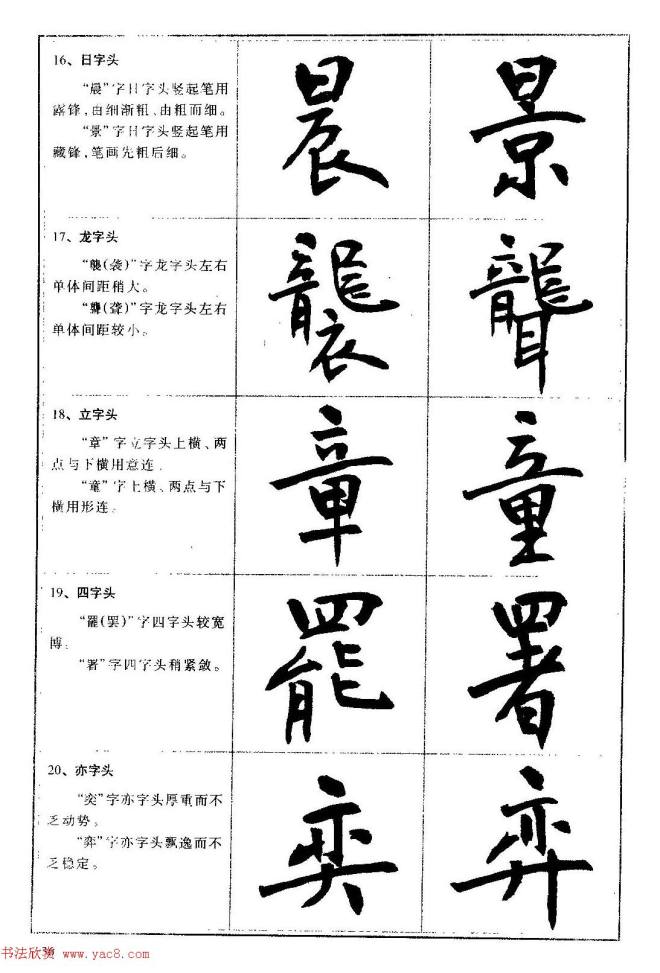 16、日字头
“晨”字日字头竖起笔用
露锋，由细渐粗、由粗而细。
“景”字日字头竖起笔用
藏锋，笔画先粗后细。
晨 景
17、龙字头
“襲(袭)”字龙字头左右
单体间距稍大。
“聾(聋)”字龙字头左右
单体间距较小。
襲 聾
18、立字头
“章”字立字头上横、两
点与下横用意连。
“童”字上横、两点与下
横用形连。
章 童
19、四字头
“罷(罢)”字四字头较宽
博。
“署”字四字头稍紧敛。
罷 署
20、亦字头
“奕”字亦字头厚重而不
乏动势。
“弈”字亦字头飘逸而不
乏稳定。
奕 弈
书法欣赏 www.yac8.com